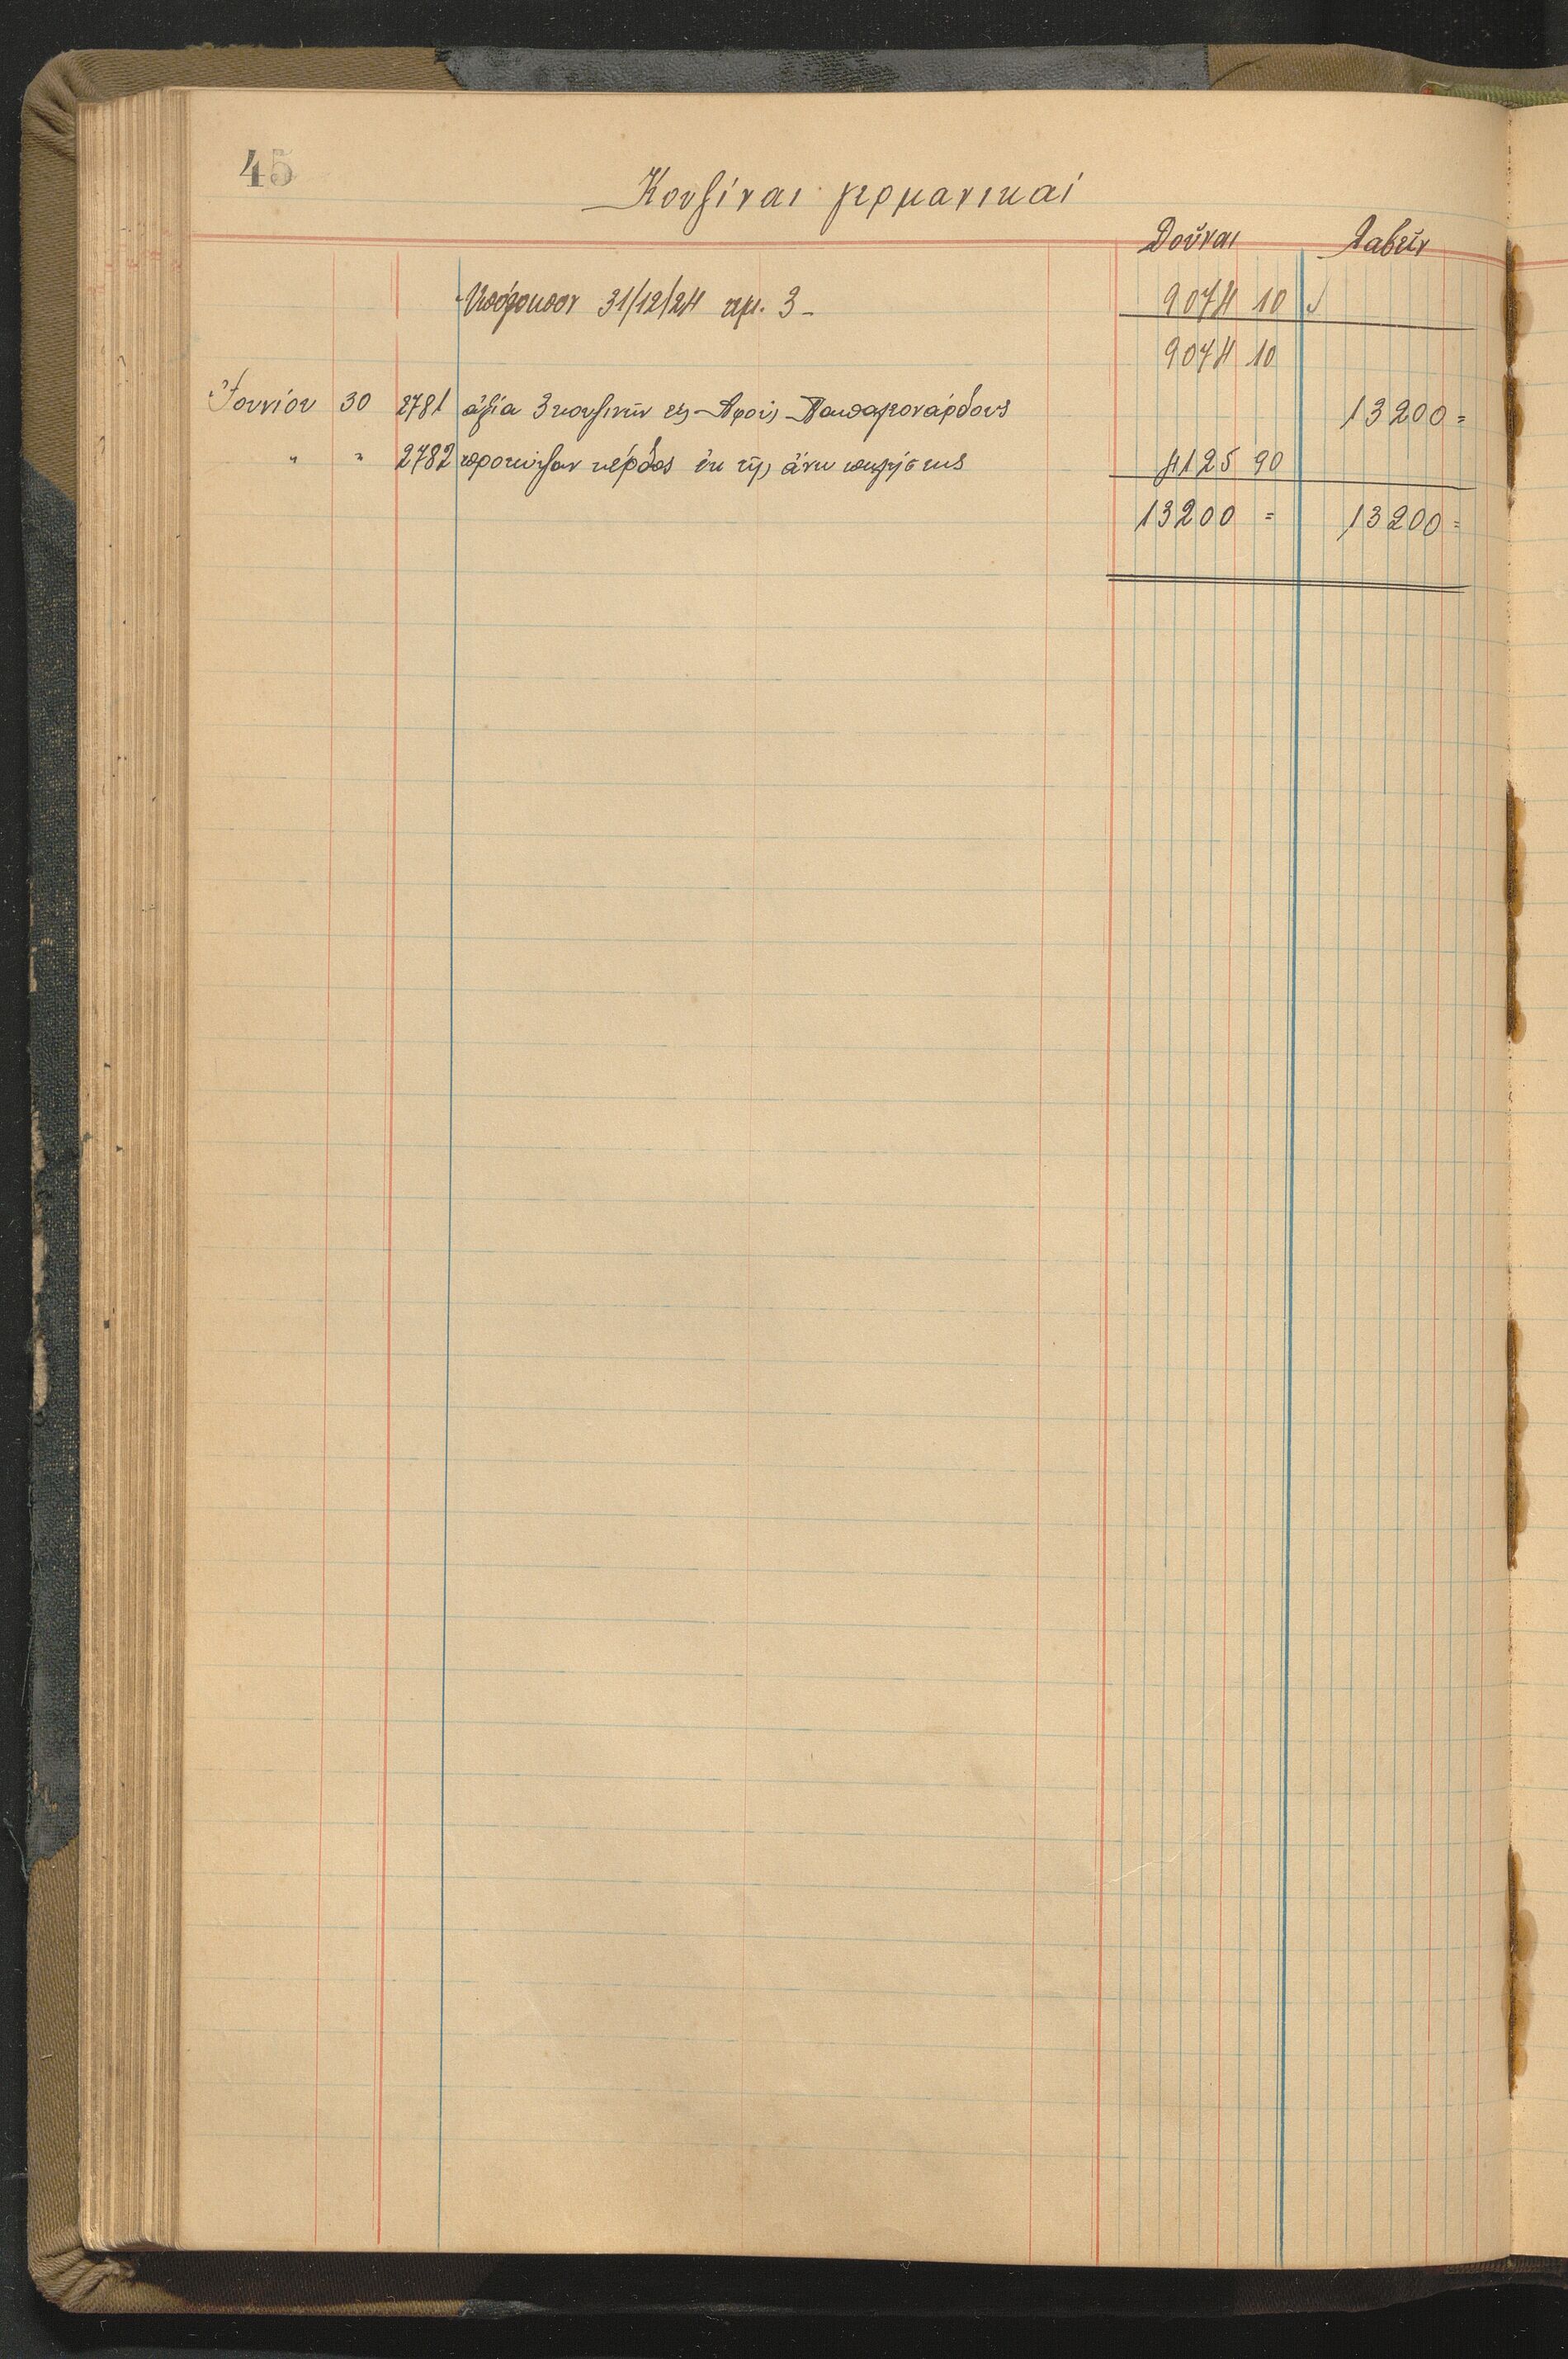 45
Κουζίναι γερμανικαί
Δοῦναι Λαβεῖν
Ὑπόλοιπον 31/12/24 τεμ. 3 - 9074 10
9074 10
Ἰουνίου 30 2781 ἀξία 3 κουζινῶν εἰς Ἀφοὺς Παπαλεονάρδους 13200 =
" " 2782 προκύψαν κέρδος ἐκ τῆς ἄνω πωλήσεως 4125 90
13200 = 13200 =